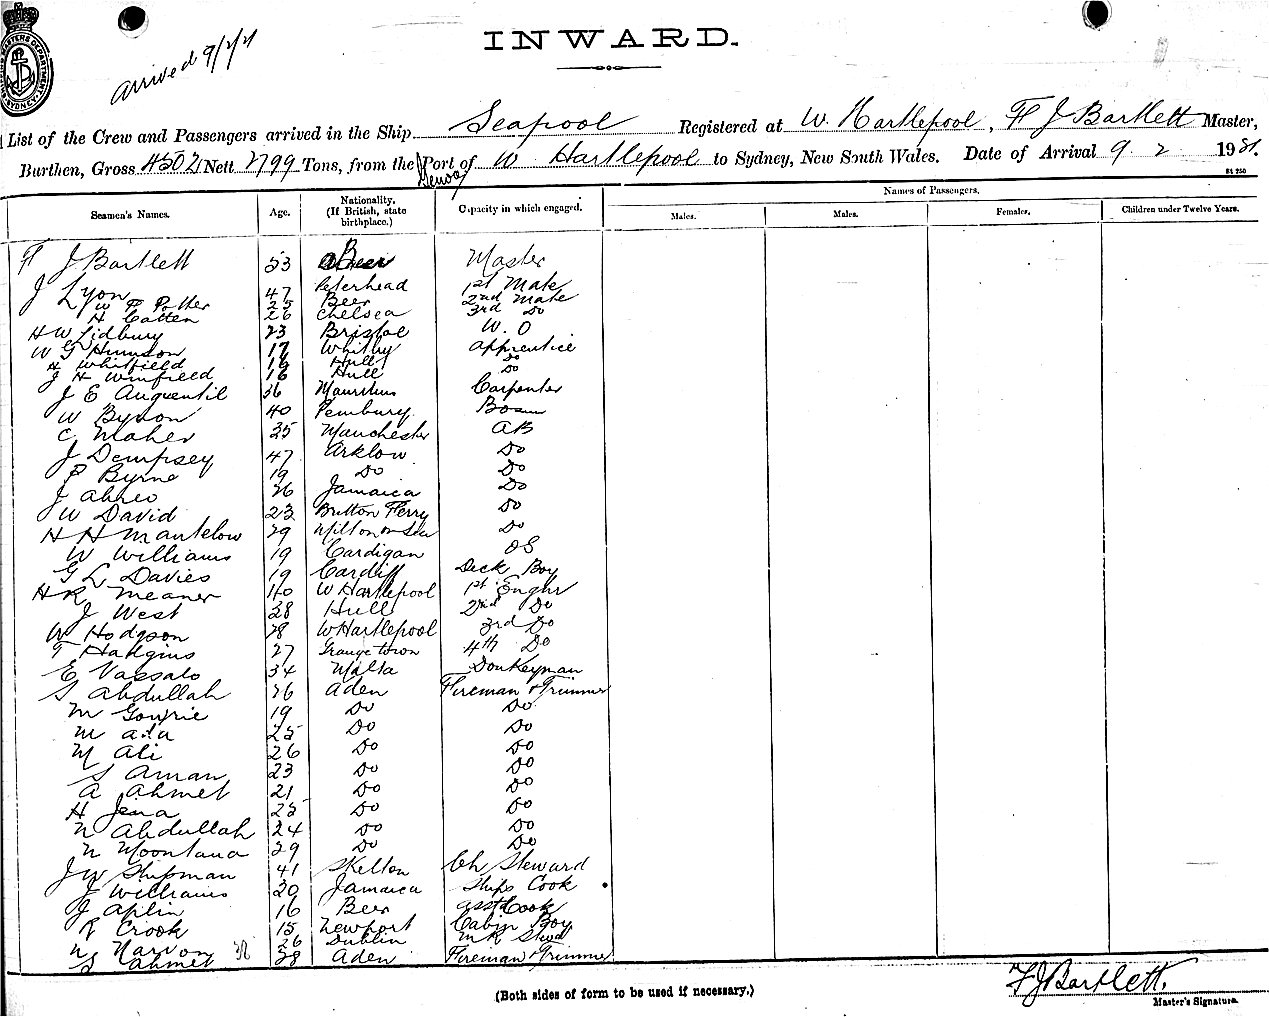 arrived 9/2/21
INWARD.
List of the Crew and Passengers arrived in the Ship Seapool Registered at W. Hartlepool, F J Bartlett Master,
Burthen, Gross 4502 Nett 2799 Tons, from the Port of W Hartlepool to Sydney, New South Wales. Date of Arrival 9 2 1921.
Genoa
Seamen's Names. Age. Nationality. (If British, state birthplace.) Capacity in which engaged. Names of Passengers.
Males. Males. Females. Children under Twelve Years.
F J Bartlett 53 Beer Master
J Lyon 47 Peterhead 1st Mate
W P Potter 25 Beer 2nd Mate
H Catten 26 Chelsea 3rd Do
H W Lidbury 23 Bristol W. O
W G 17 Whitby Apprentice
H Whitfield Hull Do
J H Winfield 16 Hull Do
J E Anquentil 36 Mauritius Carpenter
W Bynon 40 Pembury Bosun
C Maher 35 Manchester AB
J Dempsey 47 Arklow Do
P Byrne 19 Do Do
J 26 Jamaica Do
W David 23 Britton Ferry Do
H H Mantelow 29 Milton on Sea Do
W Williams 19 Cardigan OS
G L Davies 19 Cardiff Deck Boy
H R Meaner 40 W Hartlepool 1st Engnr
J West 28 Hull 2nd Do
W Hodgson 28 W Hartlepool 3rd Do
T Hadgins 27 Grangetown 4th Do
E Vassalo 34 Malta Donkeyman
S Abdullah 26 Aden Fireman & Trimmer
M 19 Do Do
M 25 Do Do
M Ali 26 Do Do
S Aman 23 Do Do
A Ahmet 21 Do Do
H Jena 25 Do Do
N Abdullah 24 Do Do
N Moontana 29 Do Do
J W Shipman 41 Skelton Ch Steward
J Williams 20 Jamaica Ships Cook
J Aplin 16 Beer Asst Cook
R Crook 15 Newport Cabin Boy
26 Dublin
S Ahmet 28 Aden Fireman & Trimmer
(Both sides of form to be used if necessary.)
F J Bartlett.
Master's Signature.